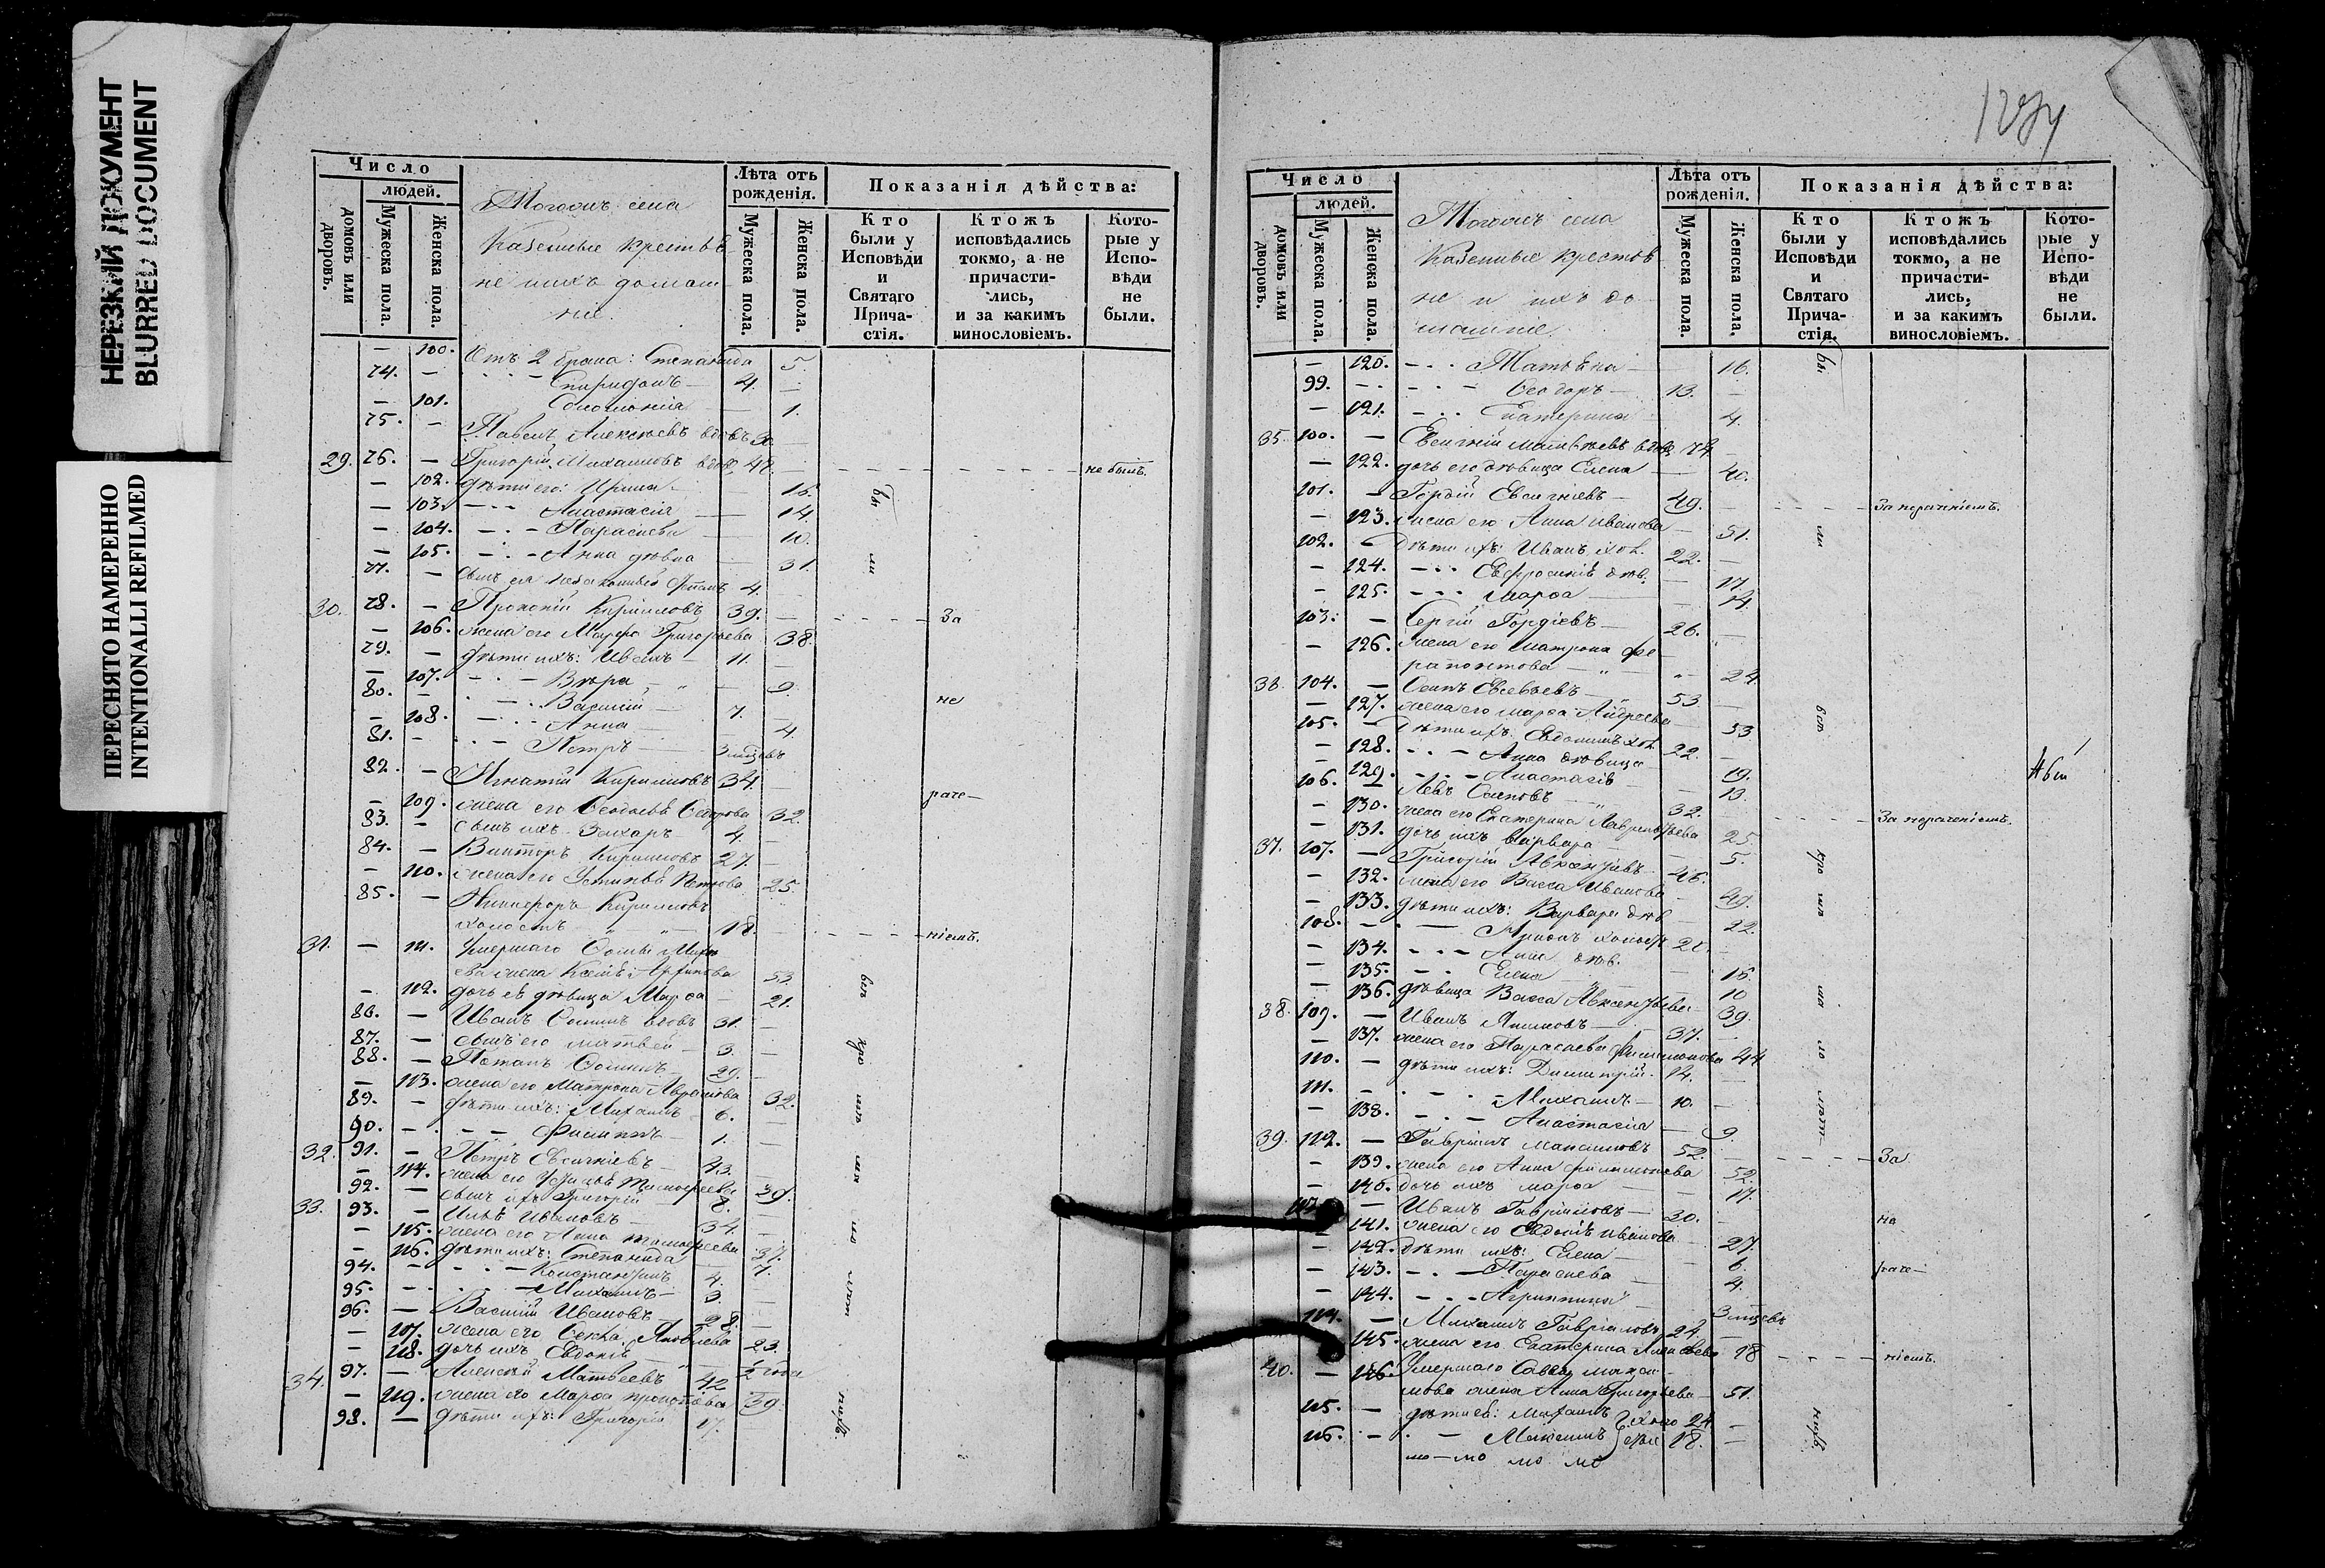 НЕРЕЗКИЙ ДОКУМЕНТ
BLURRED DOCUMENT
ПЕРЕСНЯТО НАМЕРЕННО
INTENTIONALLI REFILMED
Число
людей.
домовъ или дворовъ.
Мужеска пола.
Женска пола.
Тогожъ села
Казенные крестья
не и ихъ домаш
ніе.
Лѣта отъ рожденія.
Мужеска пола.
Женска пола.
Показанія дѣйства:
Кто были у Исповѣди и Святаго Прича-стія.
Ктожъ исповѣдались токмо, а не причасти-лись, и за какимъ винословіемъ.
Кото-рые у Испо-вѣди не были.
— 100. Отъ 2 брака: Степанида 5.
74. — Спиридонъ — 4. —
— 101. Соломонія — 1.
75. — Павелъ Алексѣевъ вдовъ 30. —
29. 76. — Григорій Михаиловъ вдовъ 47. — не былъ.
— 102. дѣти его: Ирина — 16.
— 103. Анастасія — 14.
— 104. Параскева — 10.
— 105. Анна дѣвка — 31.
77. — сынъ ея незаконный 4.
30. 78. — Прокопій Кирилловъ 39. — За
— 106. жена его Марѳа Григорьева 38.
79. — дѣти ихъ: Иванъ — 11. —
— 107. Вѣра — 9.
80. — Василій — 7. — не
— 108. Анна — 4.
81. — Петръ — 3 мѣсцевъ
82. — Игнатій Кирилловъ 34. — раче—
— 109. жена его Ѳеодосія Ѳедорова 32.
83. — сынъ ихъ Захаръ 4. —
84. — Викторъ Кирилловъ 27. —
— 110. жена его Устинія Петрова 25.
85. — Никифоръ Кирилловъ
холостъ 18. — ніемъ.
31. — 111. Умершаго Ѳомы
жена Ксенія 53.
— 112. дочь ея дѣвица Марѳа — 21.
86. — Иванъ Ѳоминъ вдовъ 31. —
87. — сынъ его Матвѣй — 3. —
88. — Потапъ Ѳоминъ — 29. —
— 113. жена его Матрона 32.
89. — дѣти ихъ: Михаилъ — 6. —
90. — Филиппъ 1. —
32. 91. — Петръ Евсигніевъ — 43.
— 114. жена его Тимоѳеева 39.
92. — сынъ ихъ Григорій 8.
33. 93. — Илья Ивановъ — 34. —
— 115. жена его Анна Тимоѳеева 37.
— 116. дѣти ихъ: Степанида 7.
94. — Константинъ 4. —
95. — Михаилъ — 3. —
96. — Василій Ивановъ 28. —
— 117. жена его Ѳекла Яковлева 23.
— 118. дочь ихъ Евдокія
34. 97. — Алексѣй Матвѣевъ 42
— 119. жена его Марѳа 39.
98. — дѣти ихъ: Григорій 17.
Число
людей.
домовъ или дворовъ.
Мужеска пола.
Женска пола.
Тогожъ села
Казенные крестья
не и ихъ до
машніе
Лѣта отъ рожденія.
Мужеска пола.
Женска пола.
Показанія дѣйства:
Кто были у Исповѣди и Святаго Прича-стія.
Ктожъ исповѣдались токмо, а не причасти-лись, и за какимъ винословіемъ.
Кото-рые у Испо-вѣди не были.
— 120. 16.
99. — Ѳеодоръ — 13. —
— 121. Екатерина — 4.
35. 100. — Евсигній Матвѣевъ вдовъ 74 —
— 122. дочь его дѣвица Елена — 40.
101. — Гордій Евсигніевъ — 49. — За нераченіемъ.
— 123. жена его Анна Иванова — 51.
102. — дѣти ихъ: Иванъ хол. 22. —
— 124. Евфросинія дѣв. — 17
— 125. Марѳа — 14.
103. — Сергій Гордіевъ — 26. —
— 126. жена его Матрона Фе
рапонтова — 24.
36. 104. — Осипъ Евсевьевъ 53 —
— 127. жена его Марѳа Андреева 53
105. — дѣти ихъ: Евдокимъ хол. 22. —
— 128. Анна дѣвица 19.
— 129. Анастасія 13.
106. — Левъ Осиповъ 32. — За нераченіемъ.
— 130. жена его Екатерина Лаврентьева 25.
— 131. дочь ихъ Варвара 5.
37. 107. — Григорій Авксентьевъ 46. —
— 132. жена его Васса Иванова 49.
— 133. дѣти ихъ: Варвара дѣв 22.
108. — холостъ 20. —
— 134. Анна дѣв. 15.
— 135. Елена 10
— 136. дѣвица Васса Авксентьева 39.
38. 109. — Иванъ 37. —
— 137. жена его Параскева Филимонова 44
110. — дѣти ихъ: Димитрій 14. —
111. — Михаилъ 10. —
— 138. Анастасія 9.
39. 112. — Гавріилъ Максимовъ 52. — За
— 139. жена его Анна Филимонова 52.
— 140. дочь ихъ Марѳа — 17.
113. — Иванъ Гавріиловъ 30. — не
— 141. жена его Евдокія Иванова 27.
— 142. дѣти ихъ: Елена — 6.
— 143. Параскева — 4. раче—
— 144. Агриппина 3 мѣсцевъ
114. — Михаилъ Гавріиловъ 24. —
— 145. жена его Екатерина Алексѣева 18 — ніемъ.
40. — 146. Умершаго Саввы Макси
мова жена Анна Григорьева 51.
115. — дѣти ея: Михаилъ 24 —
116. — Максимъ 18. —